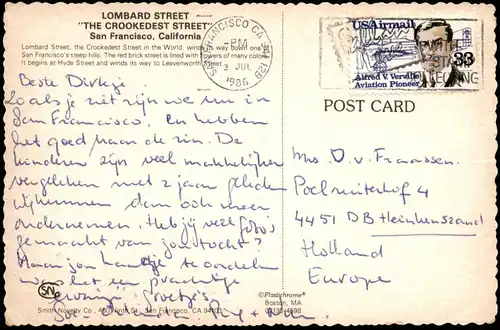 LOMBARD STREET
"THE CROOKEDEST STREET"
San Francisco, California
Lombard Street, the Crookedest Street in the World, winds its way down one
of San Francisco's steep hills. The red brick street is lined with flowers of many colors.
It begins at Hyde Street and winds its way to Leavenworth Street.
SAN FRANCISCO CA
PM
3 JUL
1986
USAirmail
33
Alfred V. Verville
Aviation Pioneer
POST CARD
Beste Dirkje
Zoals je ziet zijn we nu in
San Francisco. En hebben
het goed naar de zin. De
kinderen zijn veel makkelijker
vergeleken met 2 jaar geleden
Wij kunnen dan ook meer
ondernemen. Heb jij veel foto's
gemaakt van jou tocht?
Naar jou kaartje te oordelen
was het een prachtige
Groetjes
Mrs D. v. Fraassen
Poelruiterhof 4
4451 DB Heinkenszand
Holland
Europe
SN
Smith Novelty Co., San Francisco, CA 94103
©Plastichrome®
Boston, MA